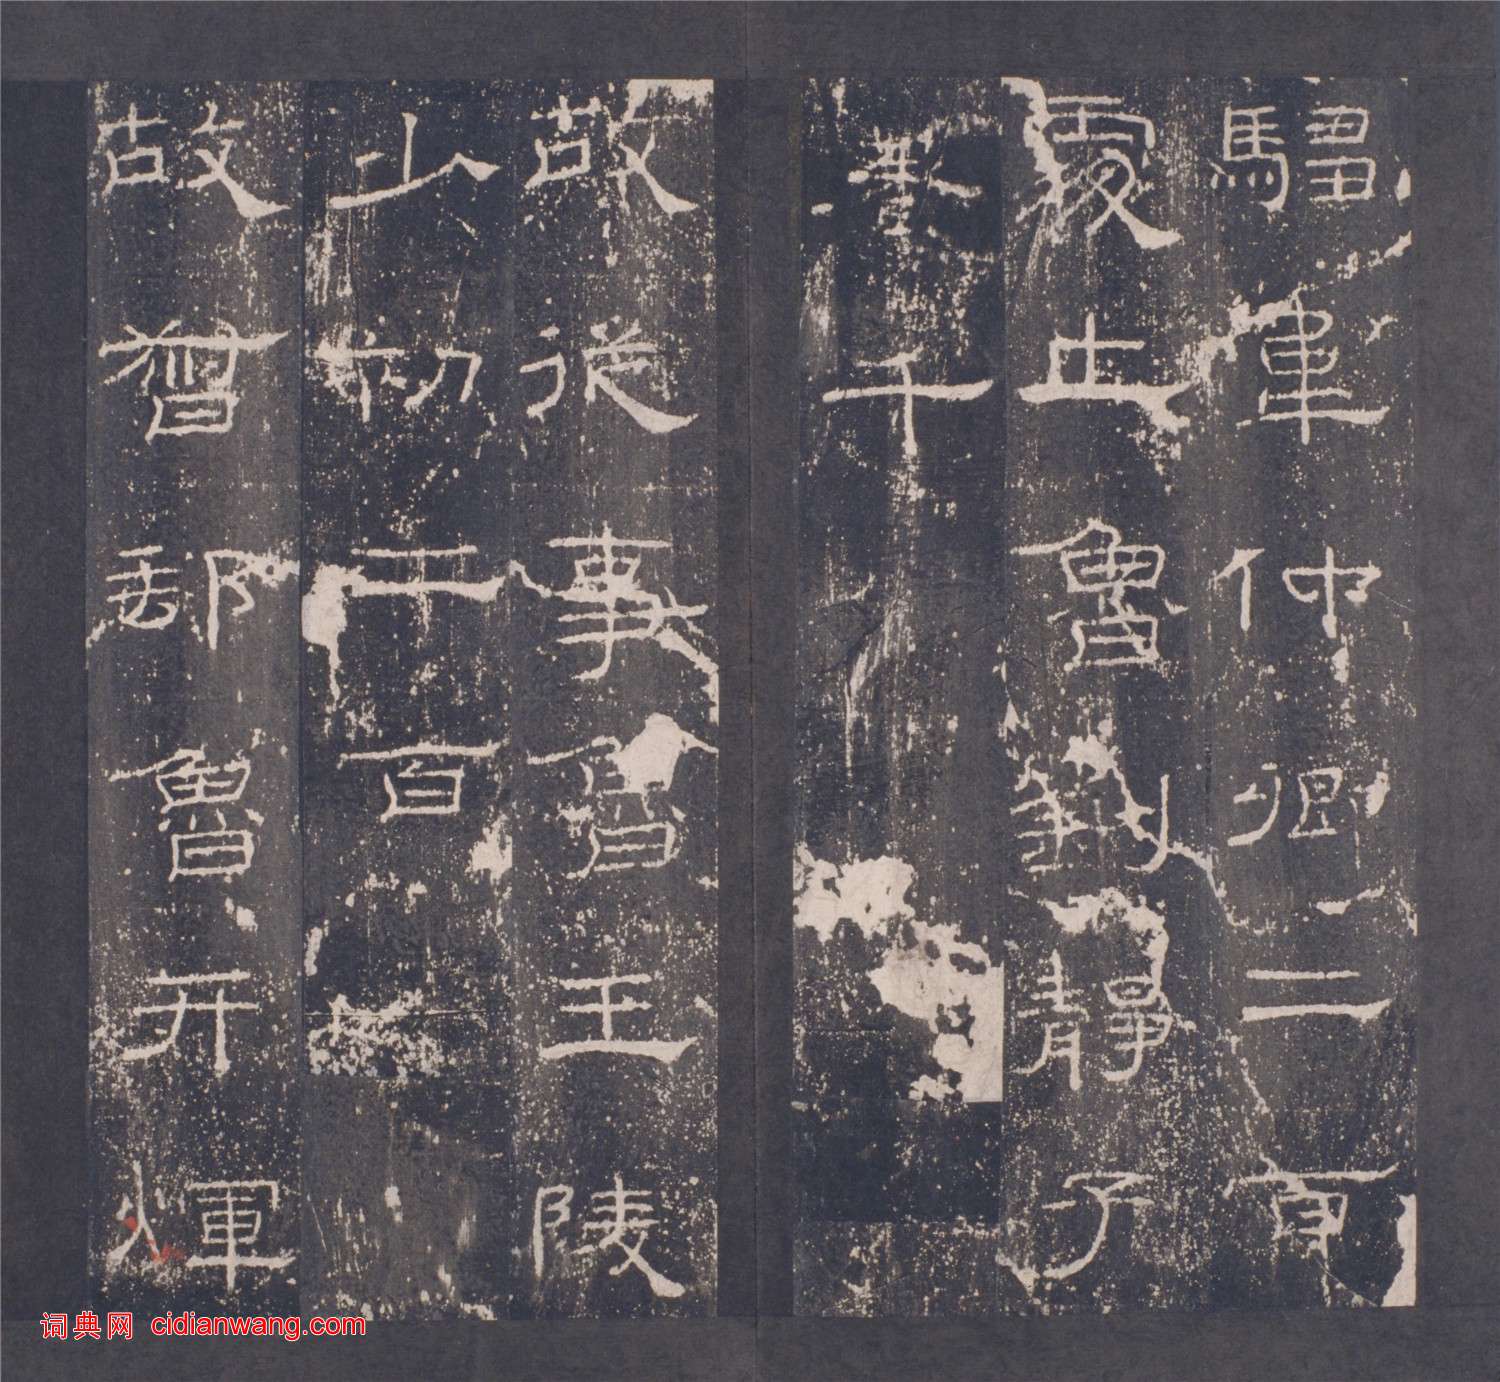 騶韋仲卿二百
處士魯劉靜子
著千
故從事魯王陵
少初二百
故督郵魯开煇
词典网 cidianwang.com